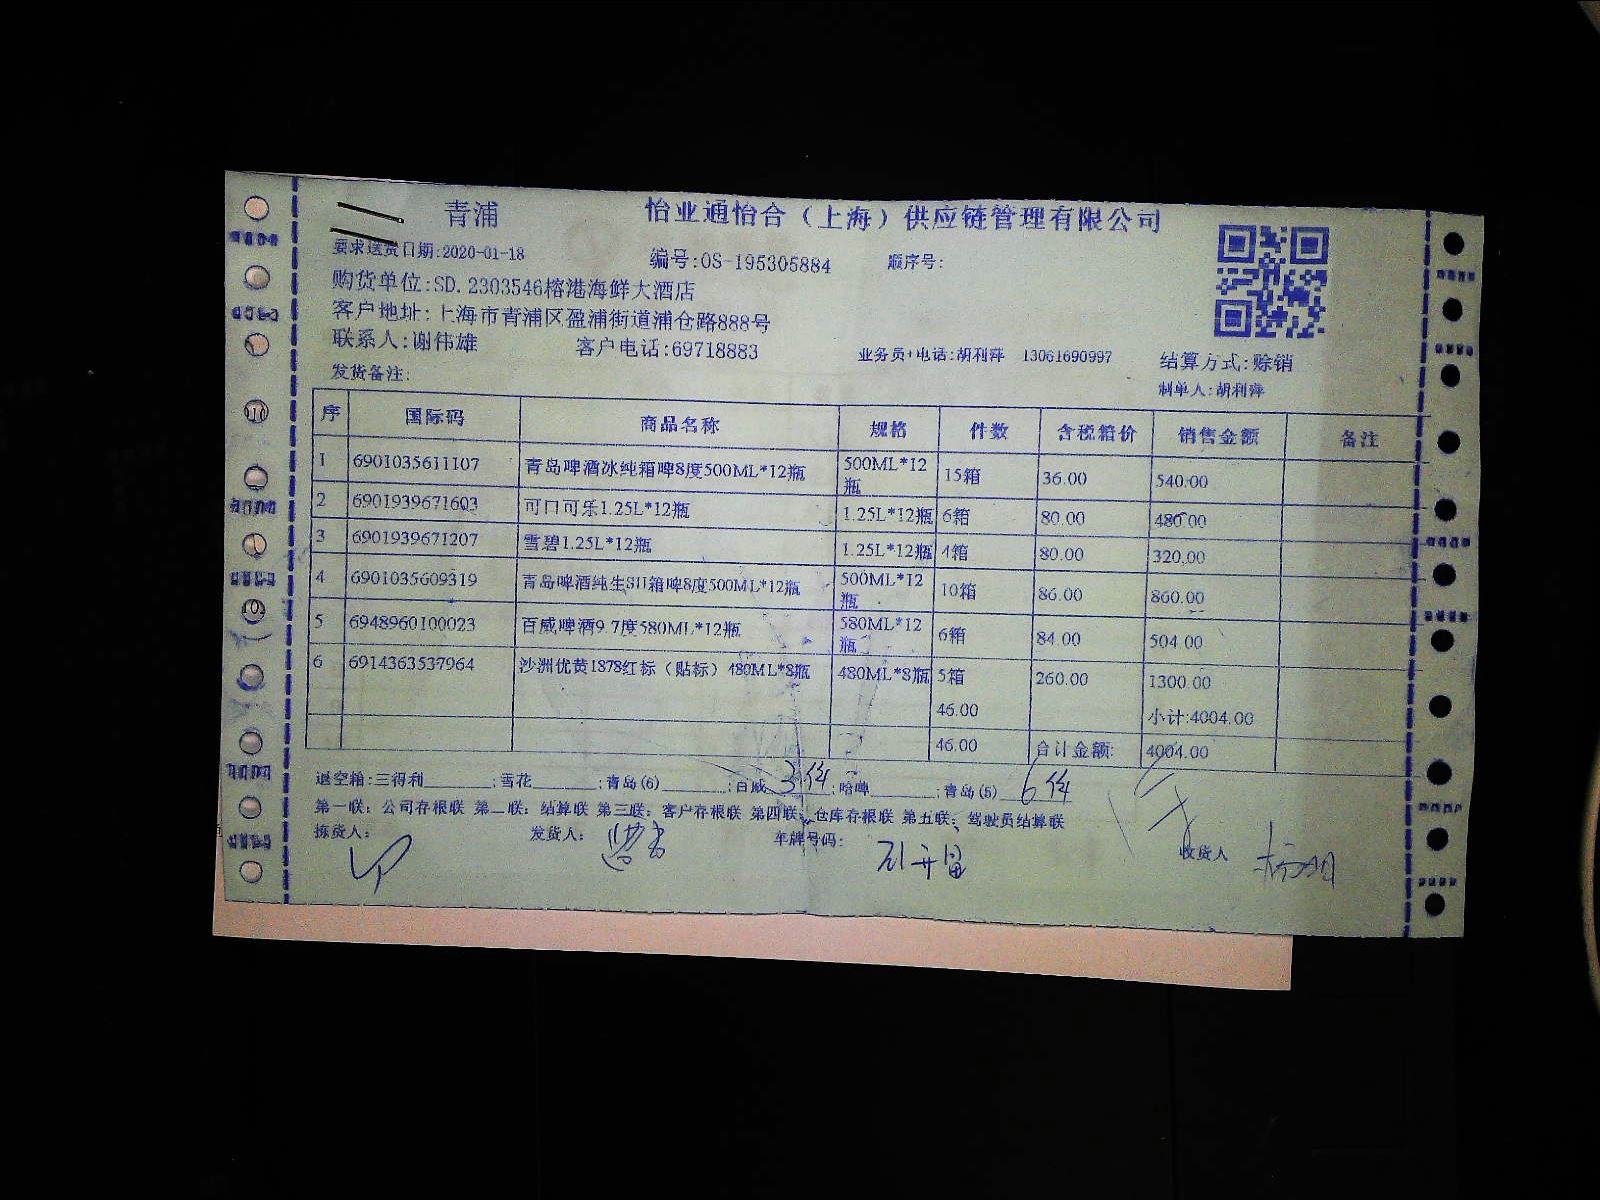 青浦 怡业通怡合（上海）供应链管理有限公司
要求送货日期:2020-01-18 编号:OS-195305884 顺序号:
购货单位:SD.2303546榕港海鲜大酒店
客户地址:上海市青浦区盈浦街道浦仓路888号
联系人:谢伟雄 客户电话:69718883 业务员+电话:胡利萍 13061690997 结算方式:赊销
发货备注: 制单人:胡利萍
序 国际码 商品名称 规格 件数 含税箱价 销售金额 备注
1 6901035611107 青岛啤酒冰纯箱啤8度500ML*12瓶 500ML*12瓶 15箱 36.00 540.00
2 6901939671603 可口可乐1.25L*12瓶 1.25L*12瓶 6箱 80.00 480.00
3 6901939671207 雪碧1.25L*12瓶 1.25L*12瓶 4箱 80.00 320.00
4 6901035609319 青岛啤酒纯生SH箱啤8度500ML*12瓶 500ML*12瓶 10箱 86.00 860.00
5 6948960100023 百威啤酒9.7度580ML*12瓶 580ML*12瓶 6箱 84.00 504.00
6 6914363537964 沙洲优黄1878红标（贴标）480ML*8瓶 480ML*8瓶 5箱 260.00 1300.00
46.00 小计:4004.00
46.00 合计金额: 4004.00
退空箱:三得利 ;雪花 ;青岛(6) ;百威 3件 ;哈啤 ;青岛(5) 6件
第一联：公司存根联 第二联：结算联 第三联：客户存根联 第四联：仓库存根联 第五联：驾驶员结算联
拣货人： 发货人： 车牌号码： 收货人